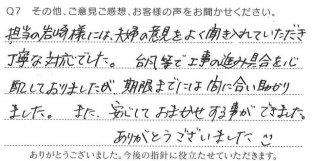 Q7 その他、ご意見ご感想、お客様の声をお聞かせください。
担当の岩崎様には、夫婦の意見をよく聞き入れていただき
丁寧な対応でした。 台風等で工事の進み具合を心
配しておりましたが 期限までには間に合い助かり
ました。 また、安心しておまかせする事ができました。
ありがとうございました
ありがとうございました。今後の指針に役立たせていただきます。